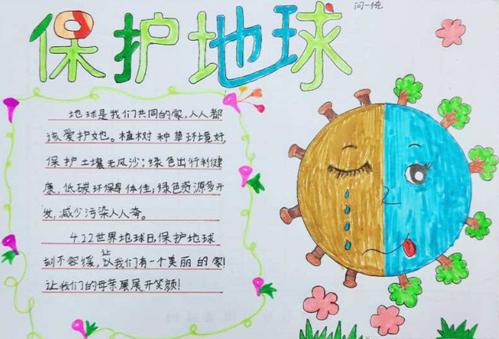 保护地球
地球是我们共同的家,人人都
该爱护她。植树种草环境好,
保护土壤无风沙;绿色出行利健
康,低碳环保身体佳;绿色资源多开
发,减少污染人人夸。
4.22世界地球日,保护地球
刻不容缓,让我们有一个美丽的家!
让我们的母亲展展开笑颜!